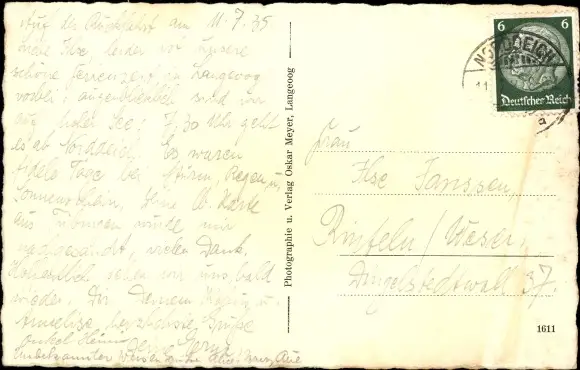 Auf der Rückfahrt am 11.7.35
Liebe Ilse, leider ist unsere
schöne Ferienzeit in Langeoog
vorbei; augenblicklich sind wir
auf hoher See; 7,30 Uhr geht
es ab Norddeich. Es waren
fidele Tage bei Sturm, Regen u.
Sonnenschein. Deine lb. Karte
aus wurde mir
nachgesandt, vielen Dank.
Hoffentlich sehen wir uns bald
wieder. Dir, Deinem u.
Annelise herzlichste Grüße
Onkel Heini Deine
Unbekannter Weise
Photographie u. Verlag Oskar Meyer, Langeoog
6 6
Deutsches Reich
NORDDEICH
11.
a
Frau
Ilse Janssen
Rinteln/Weser.
Dingelstedtwall 37.
1611